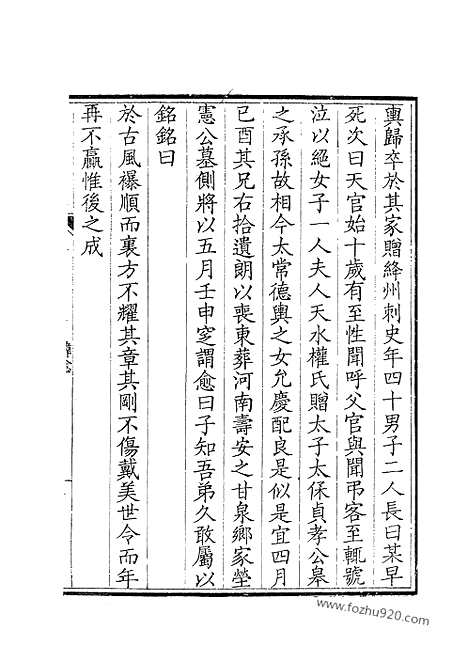 輿歸卒於其家贈絳州刺史年四十男子二人長曰某早
死次曰天官始十歲有至性聞呼父官與聞弔客至輒號
泣以絕女子一人夫人天水權氏贈太子太保貞孝公臯
之承孫故相今太常德輿之女允慶配良是似是宜四月
已酉其兄右拾遺朗以喪東葬河南壽安之甘泉鄉家塋
憲公墓側將以五月壬申窆謂愈曰子知吾弟久敢屬以
銘銘曰
於古風襮順而裏方不耀其章其剛不傷戴美世令而年
再不贏惟後之成
www.fozhu920.com